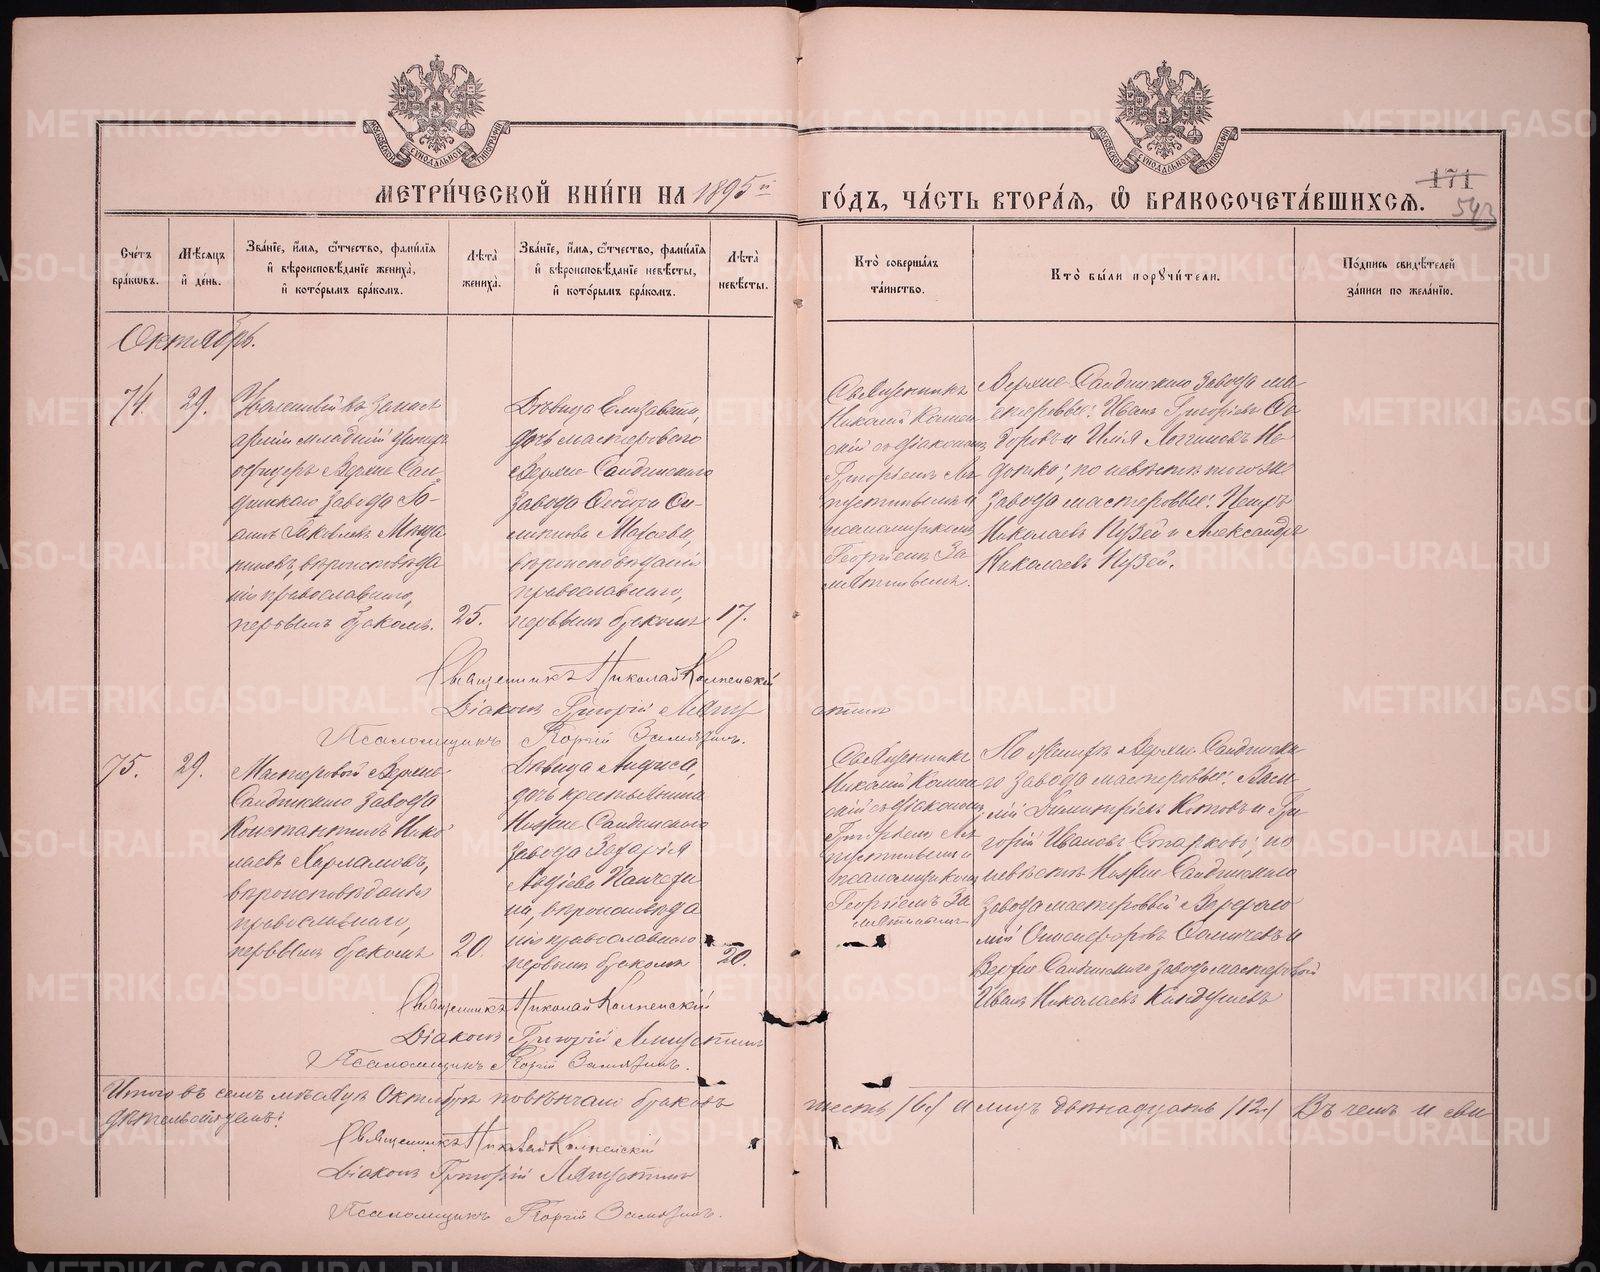 МЕТРИ́ЧЕСКОЙ КНИ́ГИ НА 1895й ГО́ДЪ, ЧА́СТЬ ВТОРА́Я, Ѡ БРАКОСОЧЕТА́ВШИХСЯ.
171
543
Сче́тъ бра́кѡвъ.
Мѣ́сяцъ и́ де́нь.
Зва́нїе, и́мя, ѻ́тчество, фами́лїя и́ вѣроисповѣ́данїе жениха̀, и́ кото́рымъ бра́комъ.
Лѣ́та̀ жениха̀.
Зва́нїе, и́мя, ѻ́тчество, фами́лїя и́ вѣроисповѣ́данїе невѣ́сты, и́ кото́рымъ бра́комъ.
Лѣ́та̀ невѣ́сты.
Кто̀ соверша́лъ та́инство.
Кто̀ бы́ли поручи́тели.
По́дпись свидѣ́телей за́писи по жела́нїю.
Октябрь.
74.
29.
Уволенный въ запасъ
арміи младшій унтеръ
офицеръ Верхне Сал-
динскаго завода
вѣроисповѣда
нія православнаго,
первымъ бракомъ.
25.
Дѣвица Елизавета,
дочь мастероваго
Верхне Салдинскаго
завода Ѳеодора
вѣроисповѣданія
православнаго,
первымъ бракомъ
17.
Священникъ
Николай
съ діакономъ
Григоріемъ Ля
пустинымъ и
псаломщикомъ
Георгіемъ За
мятинымъ.
Верхне-Салдинскаго завода ма-
стеровые: Иванъ Григорьевъ Ѳе-
доровъ и Илія Логиновъ
по невѣстѣ того же
завода мастеровые: Петръ
Николаевъ Пузѣй и Александръ
Николаевъ Пузѣй.
Священникъ Николай
Діаконъ Григорій Ляпустинъ
Псаломщикъ Георгій Замятинъ.
75.
29.
Мастеровой Верхне-
Салдинскаго завода
Константинъ Нико
лаевъ Харламовъ,
вѣроисповѣданія
православнаго,
первымъ бракомъ
20.
Дѣвица
дочь крестьянина
Нижне Салдинскаго
завода Захарія
вѣроисповѣда
нія православнаго
первымъ бракомъ
20.
Священникъ
Николай
съ діакономъ
Григоріемъ Ля
пустинымъ и
псаломщикомъ
Георгіемъ За
мятинымъ
По женихѣ Верхне-Салдинска
го завода мастеровые: Васи-
лій Димитріевъ Китовъ и Гри
горій Ивановъ Старковъ; по
невѣстѣ Нижне Салдинскаго
завода мастеровой Варѳоло
мей
Верхне Салдинскаго завода мастеровой
Иванъ Николаевъ
Священникъ Николай
Діаконъ Григорій Ляпустинъ
Псаломщикъ Георгій Замятинъ.
Итого въ семъ мѣсяцѣ Октябрѣ повѣнчано браковъ шесть /6./ а лицъ двѣнадцать /12./ Въ чемъ и сви
дѣтельствуемъ:
Священникъ Николай
Діаконъ Григорій Ляпустинъ
Псаломщикъ Георгій Замятинъ.
METRIKI.GASO-URAL.RU